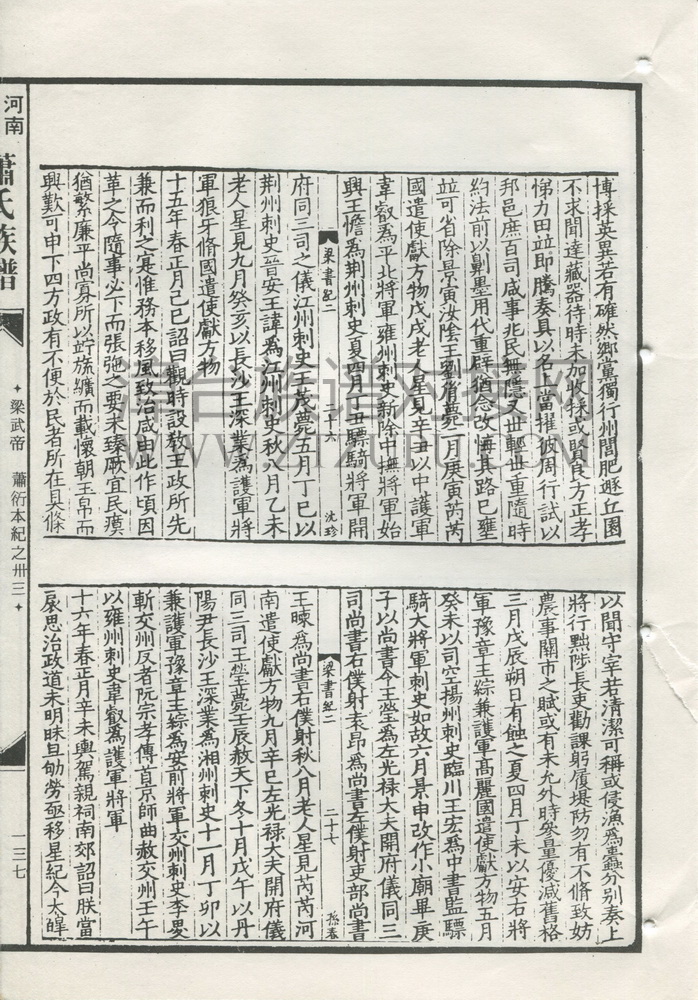 博採英異若有確然鄉黨獨行州閭肥遯丘園
不求聞達藏器待時未加收採或賢良方正孝
悌力田並即騰奏具以名上當擢彼周行試以
邦邑庶百司咸事兆民無隱又世輕世重隨時
約法前以劓墨用代重辟猶念改悔其路已壅
並可省除景寅汝陰王劉胥薨二月庚寅芮芮
國遣使獻方物戊戌老人星見辛丑以中護軍
韋叡為平北將軍雍州刺史新除中撫將軍始
興王憺為荆州刺史夏四月丁丑驃騎將軍開
梁書紀二 二十六 沈珍
府同三司之儀江州刺史王茂薨五月丁巳以
荆州刺史晉安王諱為江州刺史秋八月乙未
老人星見九月癸亥以長沙王深業為護軍將
軍狼牙脩國遣使獻方物
十五年春正月己巳詔曰觀時設教王政所先
兼而利之寔惟務本移風致治咸由此作頃因
革之令隨事必下而張弛之要未臻厥宜民瘼
猶繁廉平尚寡所以竚旒纊而載懷朝玉帛而
興歎可申下四方政有不便於民者所在具條
以聞守宰若清潔可稱或侵漁為蠹分別奏上
將行黜陟長吏勸課躬履堤防勿有不脩致妨
農事關市之賦或有未允外時參量優減舊格
三月戊辰朔日有蝕之夏四月丁未以安右將
軍豫章王綜兼護軍高麗國遣使獻方物五月
癸未以司空揚州刺史臨川王宏為中書監驃
騎大將軍刺史如故六月景申改作小廟畢庚
子以尚書令王瑩為左光祿大夫開府儀同三
司尚書右僕射袁昂為尚書左僕射吏部尚書
梁書紀二 二十七 孫春
王暕為尚書右僕射秋八月老人星見芮芮河
南遣使獻方物九月辛巳左光祿大夫開府儀
同三司王瑩薨壬辰赦天下冬十月戊午以丹
陽尹長沙王深業為湘州刺史十一月丁卯以
兼護軍豫章王綜為安前將軍交州刺史李畟
斬交州反者阮宗孝傳首京師曲赦交州壬午
以雍州刺史韋叡為護軍將軍
十六年春正月辛未輿駕親祠南郊詔曰朕當
扆思治政道未明昧旦劬勞亟移星紀今太皞
河南 蕭氏族譜
梁武帝 蕭衍本紀之卅三
一三七
WWW.ZTZUPU.COM